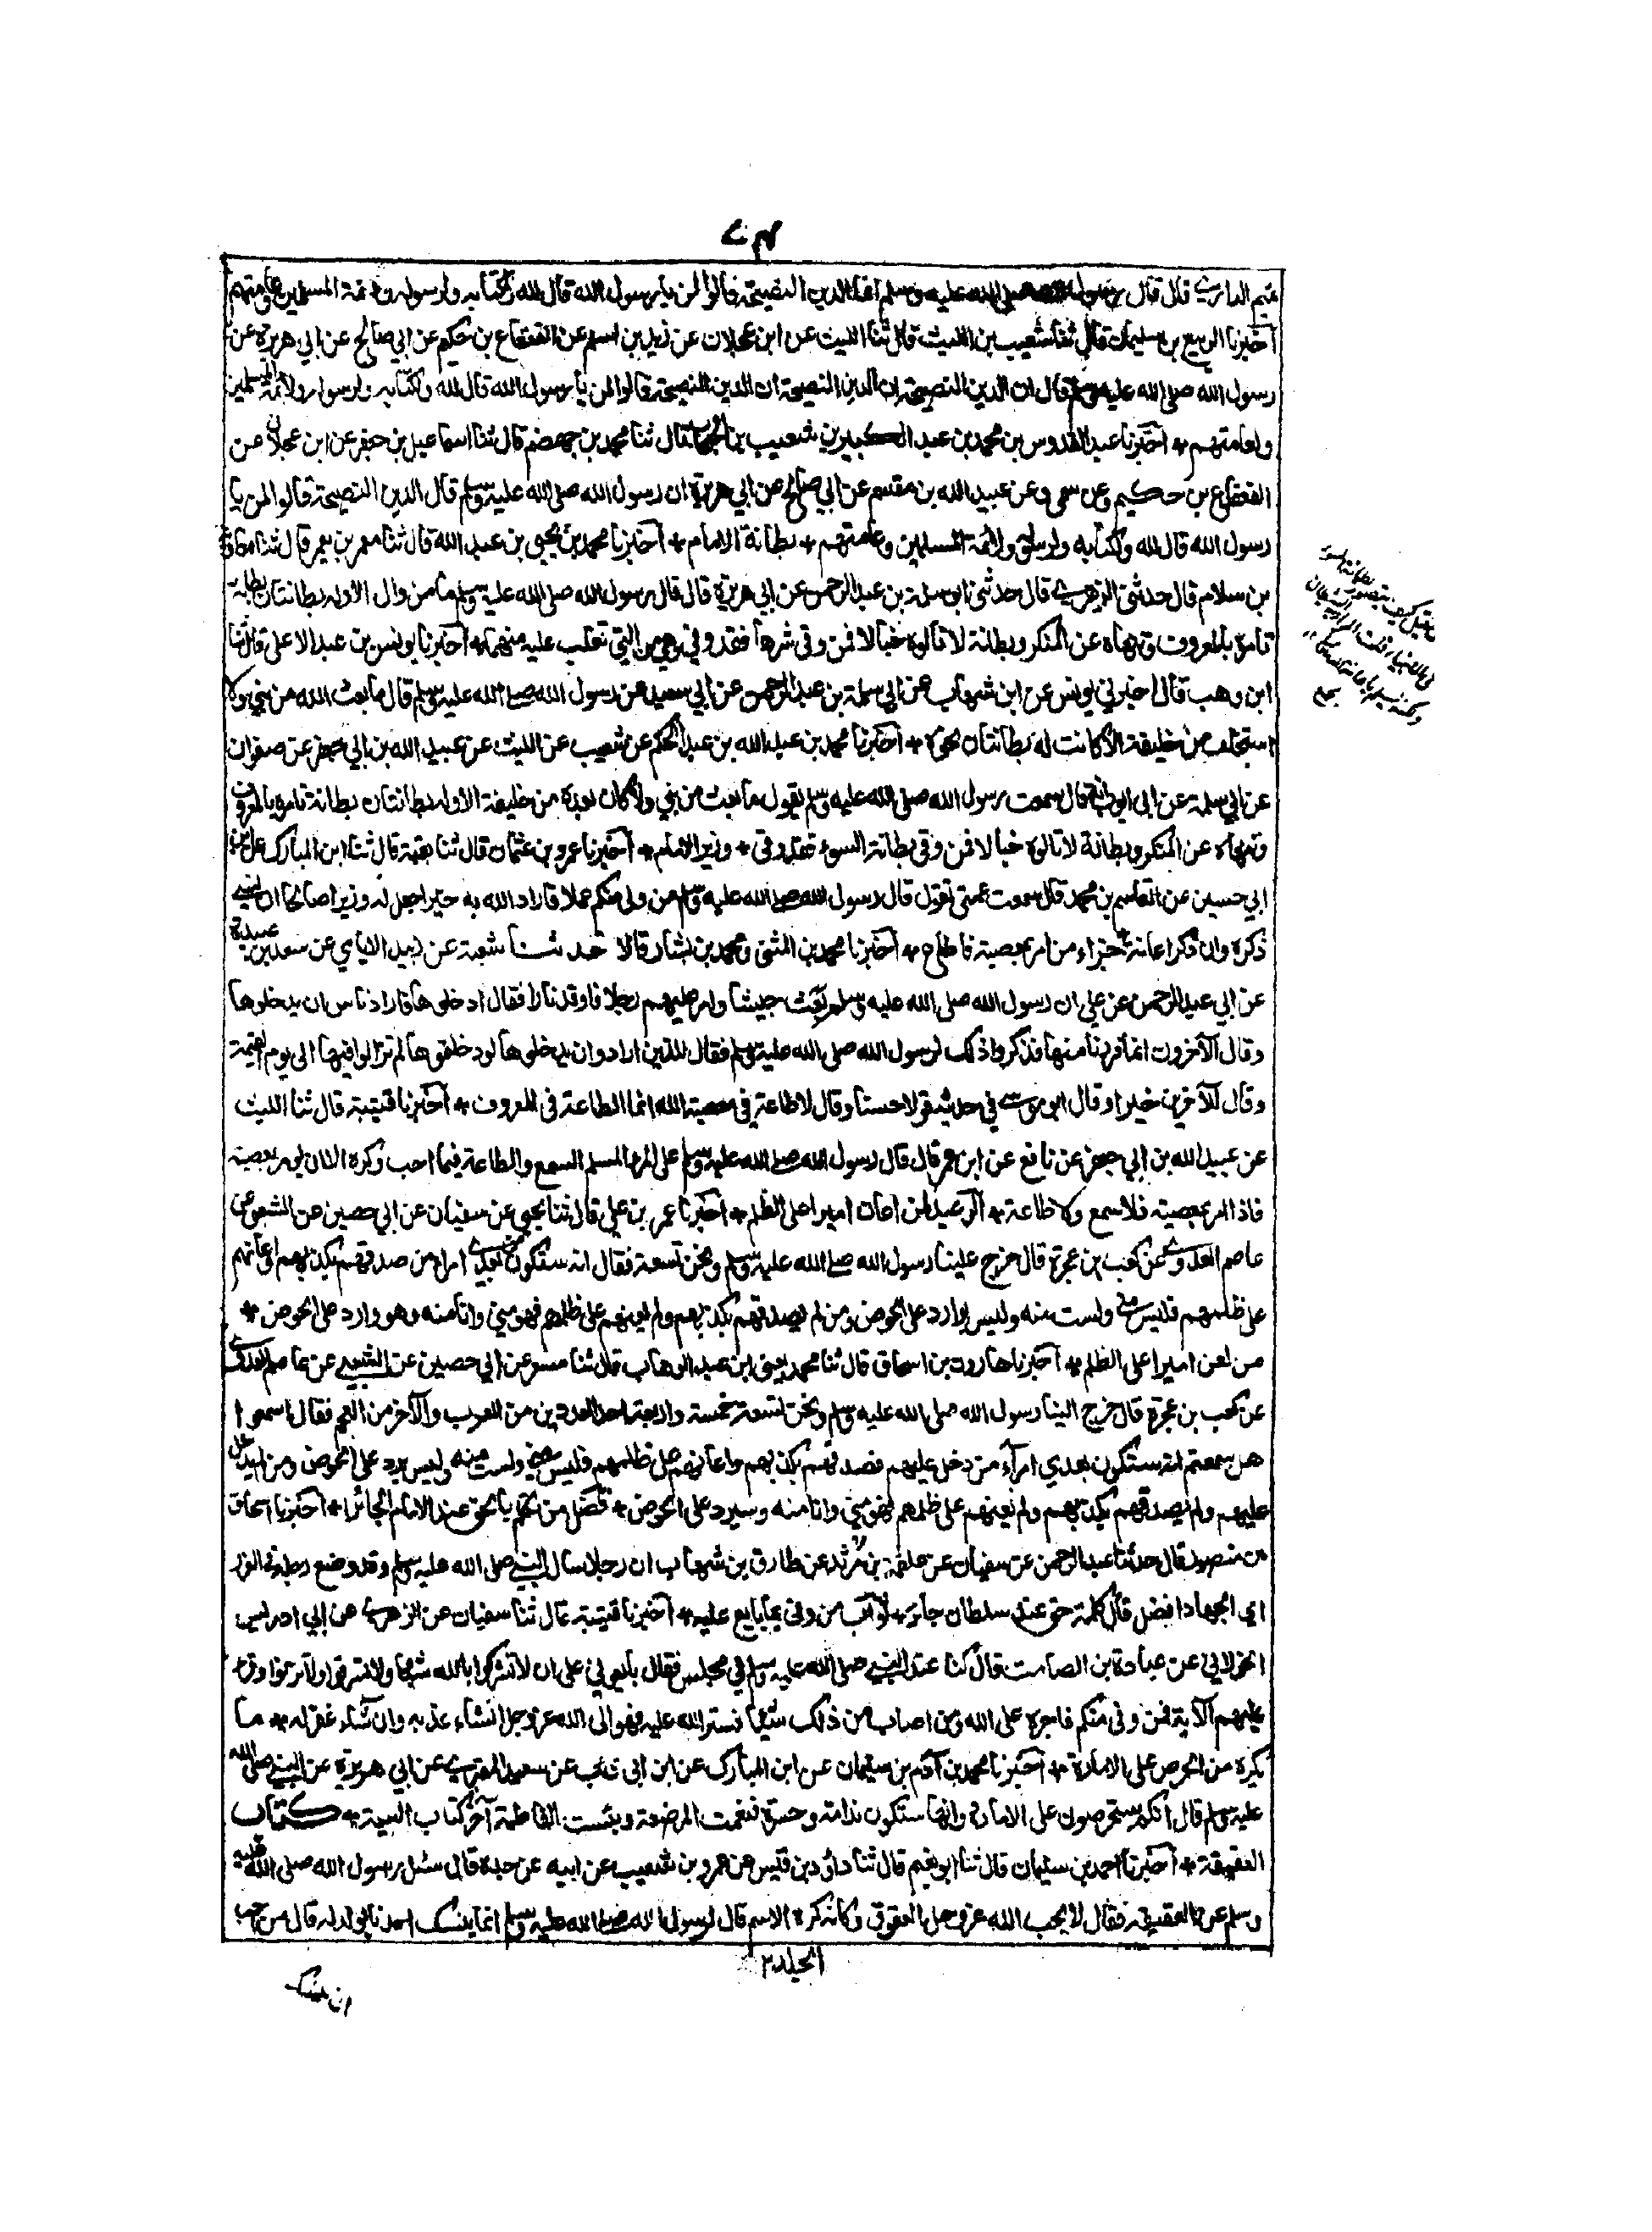 تميم الداري قال قال رسول الله صلى الله عليه وسلم انما الدين النصيحة قالوا لمن يا رسول الله قال لله ولكتابه ولرسوله ولائمة المسلمين وعامتهم
اخبرنا الربيع بن سليمان قال ثنا شعيب بن الليث قال ثنا الليث عن ابن عجلان عن زيد بن اسلم عن القعقاع بن حكيم عن ابي صالح عن ابي هريرة عن
رسول الله صلى الله عليه وسلم قال ان الدين النصيحة ان الدين النصيحة ان الدين النصيحة قالوا لمن يا رسول الله قال لله ولكتابه ولرسوله ولائمة المسلمين
ولعامتهم * اخبرنا عبد القدوس بن محمد بن عبد الكبير بن شعيب بن الحبحاب قال ثنا محمد بن جهضم قال ثنا اسماعيل بن جعفر عن ابن عجلان عن
القعقاع بن حكيم وعن سمى وعن عبيد الله بن مقسم عن ابي صالح عن ابي هريرة ان رسول الله صلى الله عليه وسلم قال الدين النصيحة قالوا لمن يا
رسول الله قال لله ولكتابه ولرسوله ولائمة المسلمين وعامتهم * بطانة الامام * اخبرنا محمد بن يحيى بن عبد الله قال ثنا معمر بن يعمر قال ثنا معاوية
بن سلام قال حدثني الزهري قال حدثني ابو سلمة بن عبد الرحمن عن ابي هريرة قال قال رسول الله صلى الله عليه وسلم ما من وال الا وله بطانتان بطانة
تامره بالمعروف وتنهاه عن المنكر وبطانة لا تالوه خبالا فمن وقى شرها فقد وقي وهو من التي تغلب عليه منهما * اخبرنا يونس بن عبد الاعلى قال ثنا
ابن وهب قال اخبرني يونس عن ابن شهاب عن ابي سلمة بن عبد الرحمن عن ابي سعيد عن رسول الله صلى الله عليه وسلم قال ما بعث الله من نبي ولا
استخلف من خليفة الا كانت له بطانتان نحوه * اخبرنا محمد بن عبد الله بن عبد الحكم عن شعيب عن الليث عن عبيد الله بن ابي جعفر عن صفوان
عن ابي سلمة عن ابي ايوب انه قال سمعت رسول الله صلى الله عليه وسلم يقول ما بعث من نبي ولا كان بعده من خليفة الا وله بطانتان بطانة تامره بالمعروف
وتنهاه عن المنكر وبطانة لا تالوه خبالا فمن وقي بطانة السوء فقد وقي * وزير الامام * اخبرنا عمرو بن عثمان قال ثنا بقية قال ثنا ابن المبارك عن ابن
ابي حسين عن القاسم بن محمد قال سمعت عمتي تقول قال رسول الله صلى الله عليه وسلم من ولى منكم عملا فاراد الله به خيرا جعل له وزيرا صالحا ان نسي
ذكره وان ذكر اعانه * جزاء من امر بمعصية فاطاع * اخبرنا محمد بن المثنى ومحمد بن بشار قالا حدثنا شعبة عن زبيد اليامي عن سعد بن عبيدة
عن ابي عبد الرحمن عن علي ان رسول الله صلى الله عليه وسلم بعث جيشا وامر عليهم رجلا فاوقد نارا فقال ادخلوها فاراد ناس ان يدخلوها
وقال الآخرون انما فررنا منها فذكروا ذلك لرسول الله صلى الله عليه وسلم فقال للذين ارادوا ان يدخلوها لو دخلتموها لم تزالوا فيها الى يوم القيمة
وقال للآخرين خيرا وقال ابو موسى في حديثه قولا حسنا وقال لا طاعة في معصية الله انما الطاعة في المعروف * اخبرنا قتيبة قال ثنا الليث
عن عبيد الله بن ابي جعفر عن نافع عن ابن عمر قال قال رسول الله صلى الله عليه وسلم على المرء المسلم السمع والطاعة فيما احب وكره الا ان يؤمر بمعصية
فاذا امر بمعصية فلا سمع ولا طاعة * الوعيد لمن اعان اميرا على الظلم * اخبرنا عمر بن علي قال ثنا يحيى عن سفيان عن ابي حصين عن الشعبي عن
عاصم العدوي عن كعب بن عجرة قال خرج علينا رسول الله صلى الله عليه وسلم ونحن تسعة فقال انه ستكون بعدي امراء من صدقهم بكذبهم واعانهم
على ظلمهم فليس مني ولست منه وليس بوارد على الحوض ومن لم يصدقهم بكذبهم ولم يعنهم على ظلمهم فهو مني وانا منه وهو وارد على الحوض *
من لم يعن اميرا على الظلم * اخبرنا هارون بن اسحاق قال ثنا محمد يعني ابن عبد الوهاب قال ثنا مسعر عن ابي حصين عن الشعبي عن عاصم العدوي
عن كعب بن عجرة قال خرج الينا رسول الله صلى الله عليه وسلم ونحن تسعة خمسة واربعة احد العددين من العرب والآخر من العجم فقال اسمعوا
هل سمعتم انه ستكون بعدي امرآء من دخل عليهم فصدقهم بكذبهم واعانهم على ظلمهم فليس مني ولست منه وليس يرد على الحوض ومن لم يدخل
عليهم ولم يصدقهم بكذبهم ولم يعنهم على ظلمهم فهو مني وانا منه وسيرد على الحوض * فضل من تكلم بالحق عند الامام الجائر * اخبرنا اسحاق
بن منصور قال حدثنا عبد الرحمن عن سفيان عن علقمة بن مرثد عن طارق بن شهاب ان رجلا سال النبي صلى الله عليه وسلم وقد وضع رجله في الغرز
اي الجهاد افضل قال كلمة حق عند سلطان جائر * ثواب من وفى بما بايع عليه * اخبرنا قتيبة قال ثنا سفيان عن الزهري عن ابي ادريس
الخولاني عن عبادة بن الصامت قال كنا عند النبي صلى الله عليه وسلم في مجلس فقال بايعوني على ان لا تشركوا بالله شيئا ولا تسرقوا ولا تزنوا وقرا
عليهم الآية فمن وفى منكم فاجره على الله ومن اصاب من ذلك شيئا فستر الله عليه فهو الى الله عز وجل ان شاء عذبه وان شاء غفر له * ما
يكره من الحرص على الامارة * اخبرنا محمد بن آدم بن سليمان عن ابن المبارك عن ابن ابي ذئب عن سعيد المقبري عن ابي هريرة عن النبي صلى الله
عليه وسلم قال انكم ستحرصون على الامارة وانها ستكون ندامة وحسرة فنعمت المرضعة وبئست الفاطمة آخر كتاب البيعة * كتاب
العقيقة * اخبرنا احمد بن سليمان قال ثنا ابو نعيم قال ثنا داؤد بن قيس عن عمرو بن شعيب عن ابيه عن جده قال سئل رسول الله صلى الله عليه
وسلم عن العقيقة فقال لا يحب الله عز وجل العقوق وكانه كره الاسم قال لرسول الله صلى الله عليه وسلم انما ينسك احدنا يولد له قال من احب
الجلد ٢
ان ينسك